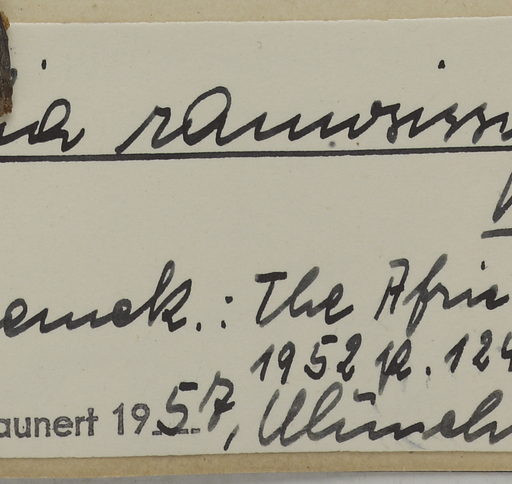 nia ramosissi
emek.: The Afri
1952 p. 124
aunert 1957, Münch